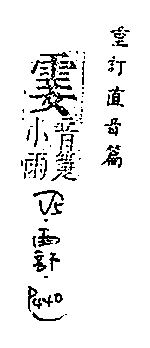 重訂直音篇
音箑
小雨
V5．雨部．P440